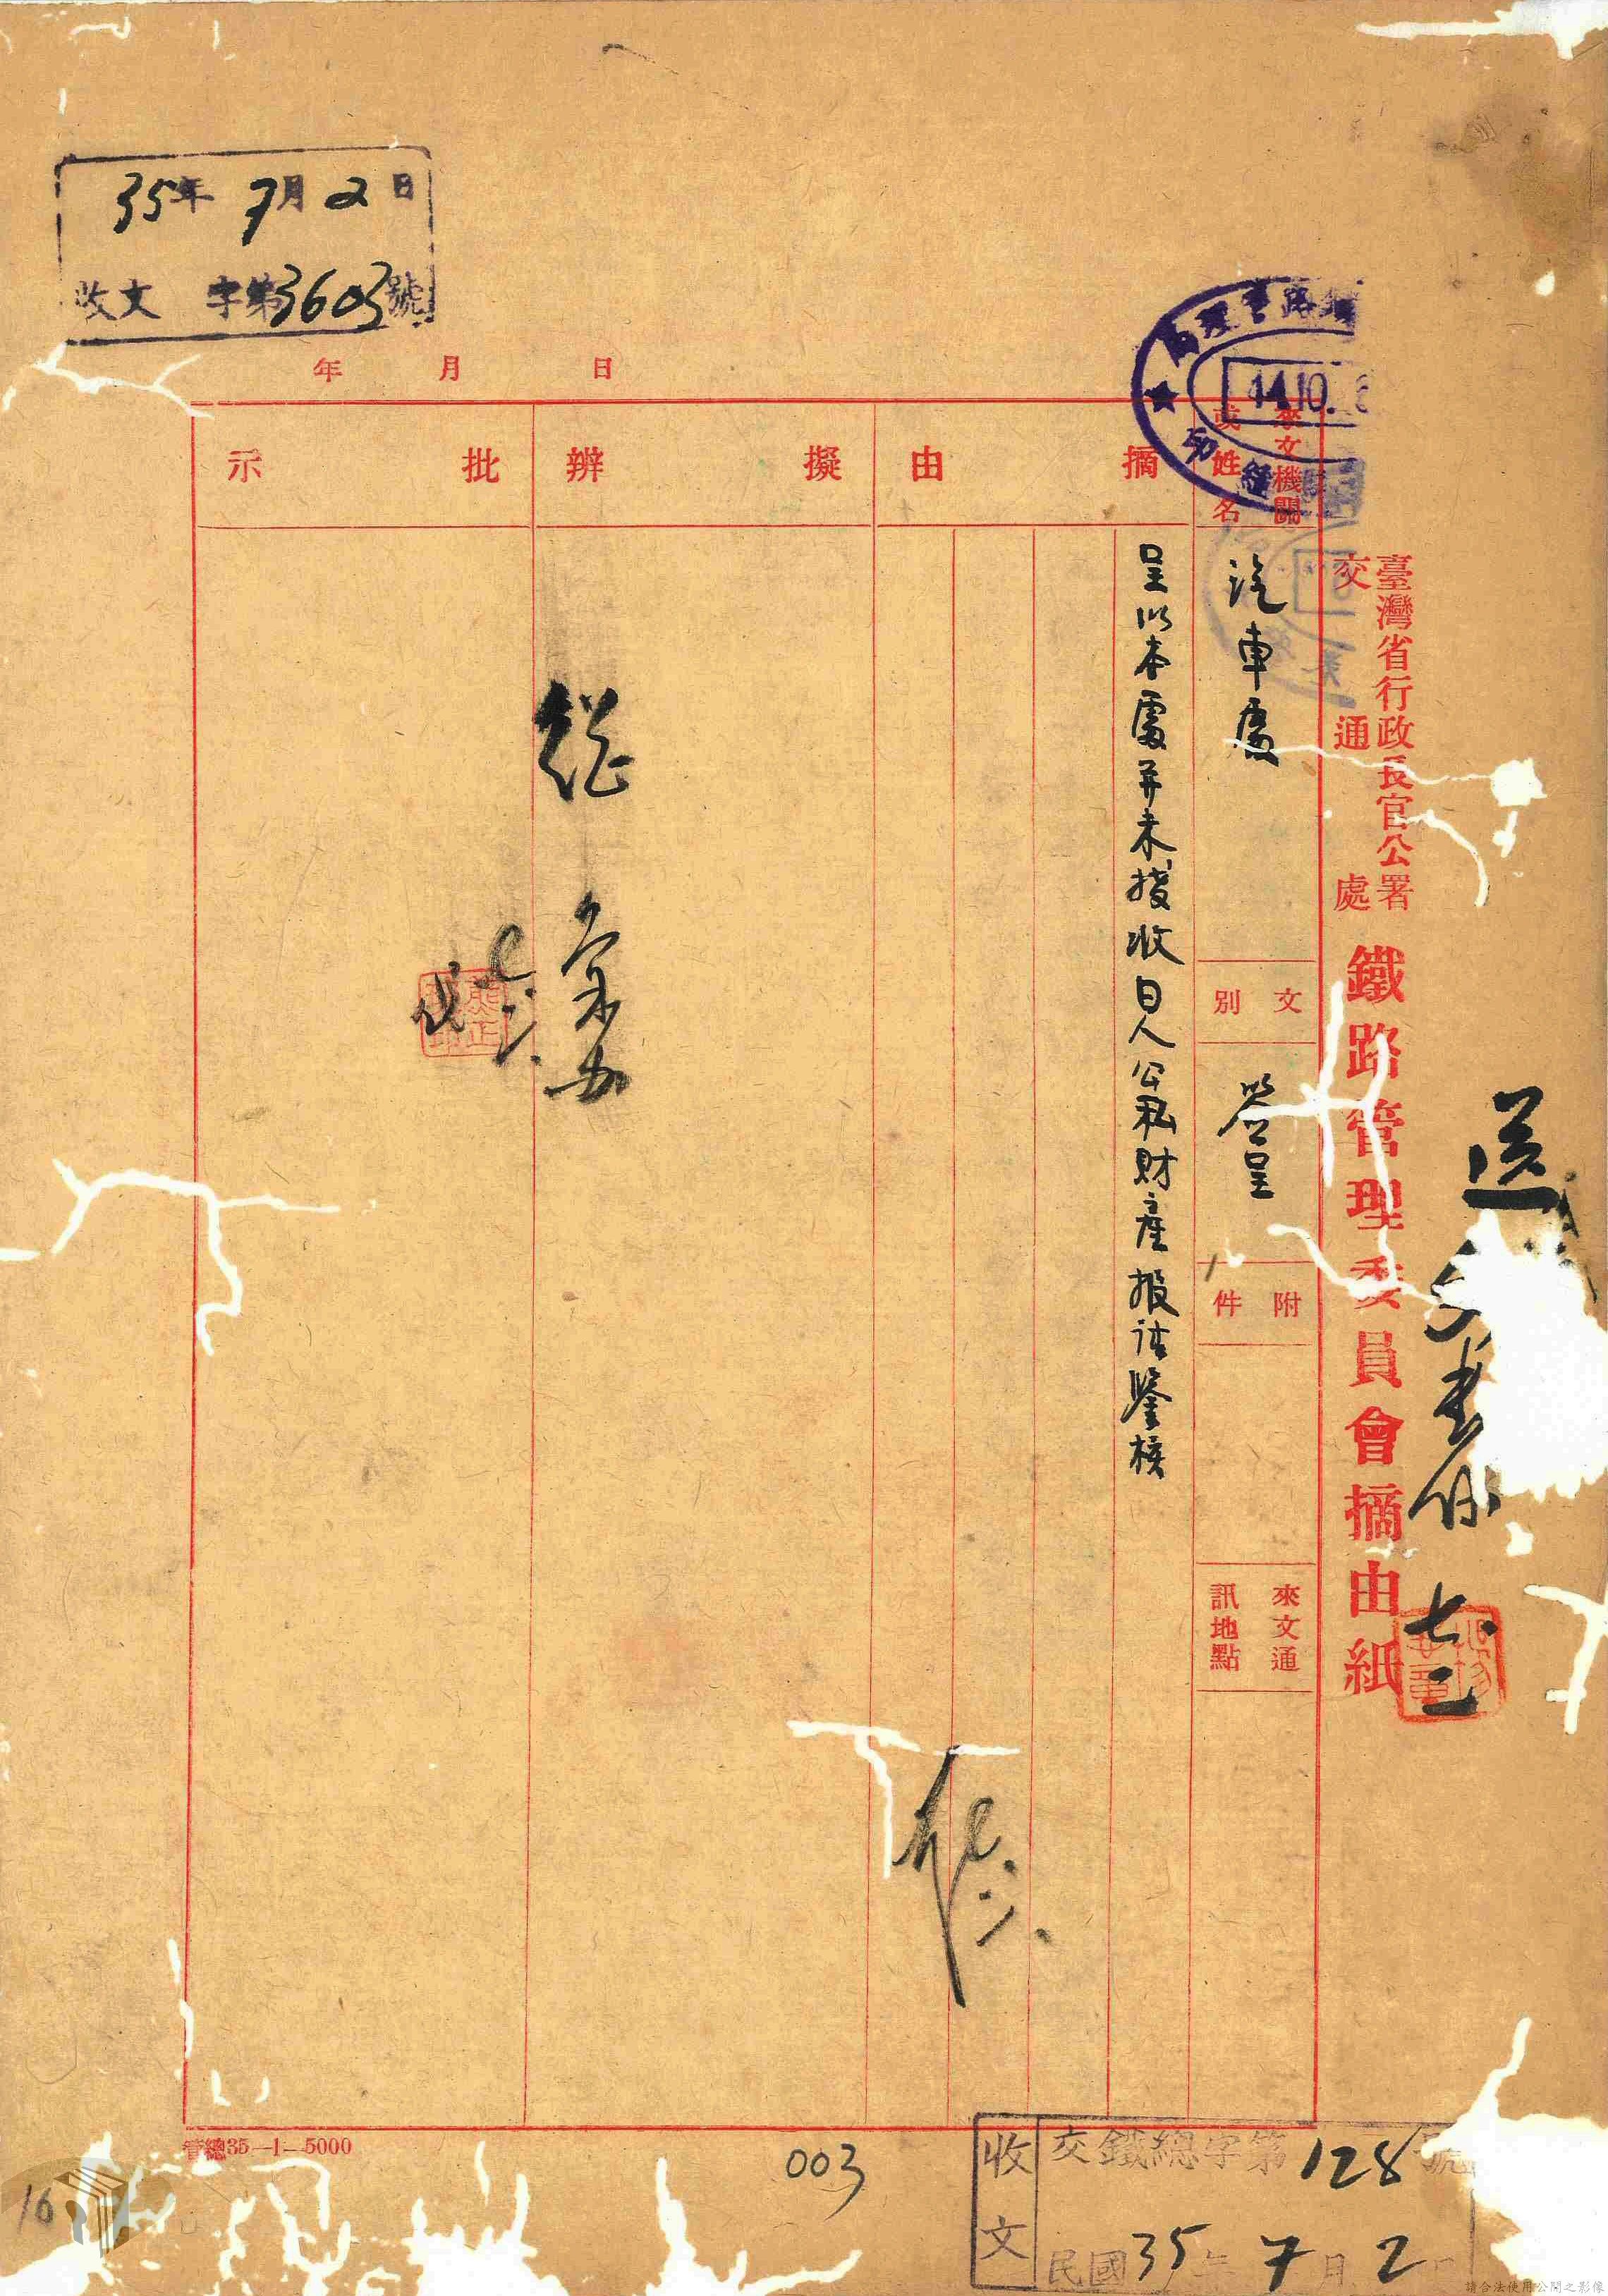 35年7月2日
收文 字第3603號
年 月 日
臺灣省行政長官公署
交通處
鐵路管理委員會摘由紙
來文機關
或姓名
汽車處
文別
簽呈
附件
來文通
訊地點
摘由
呈以本處并未接收日人公私財產報請鑒核
擬辦
彙办
批示
送
書
七
二
管總35—1—5000
003
收文
交鐵總字第128號
民國35年7月2日
16
請合法使用公開之影像